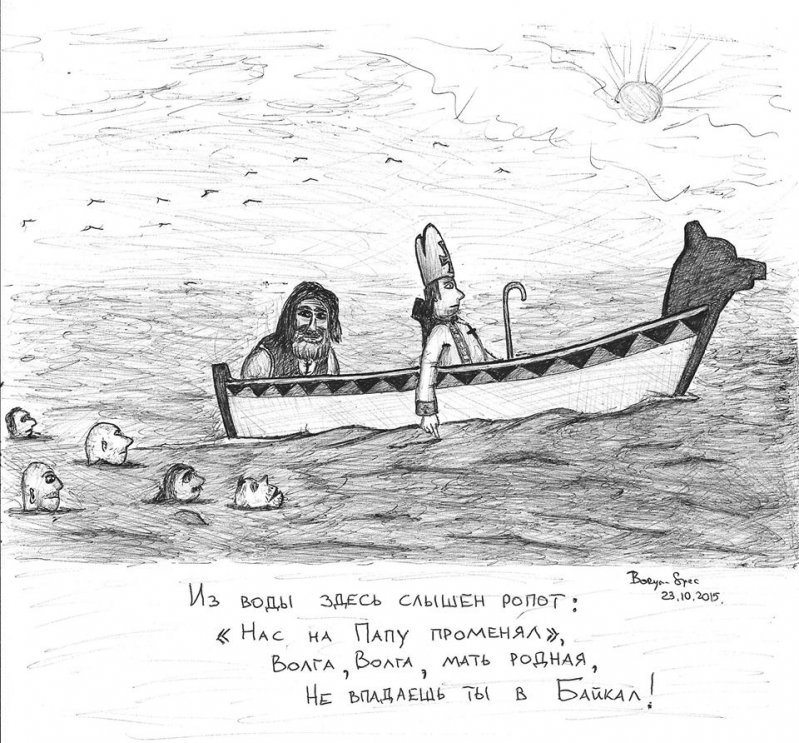 23.10.2015.
Из воды здесь слышен ропот:
« Нас на Папу променял»,
Волга, Волга, мать родная,
Не впадаешь ты в Байкал!